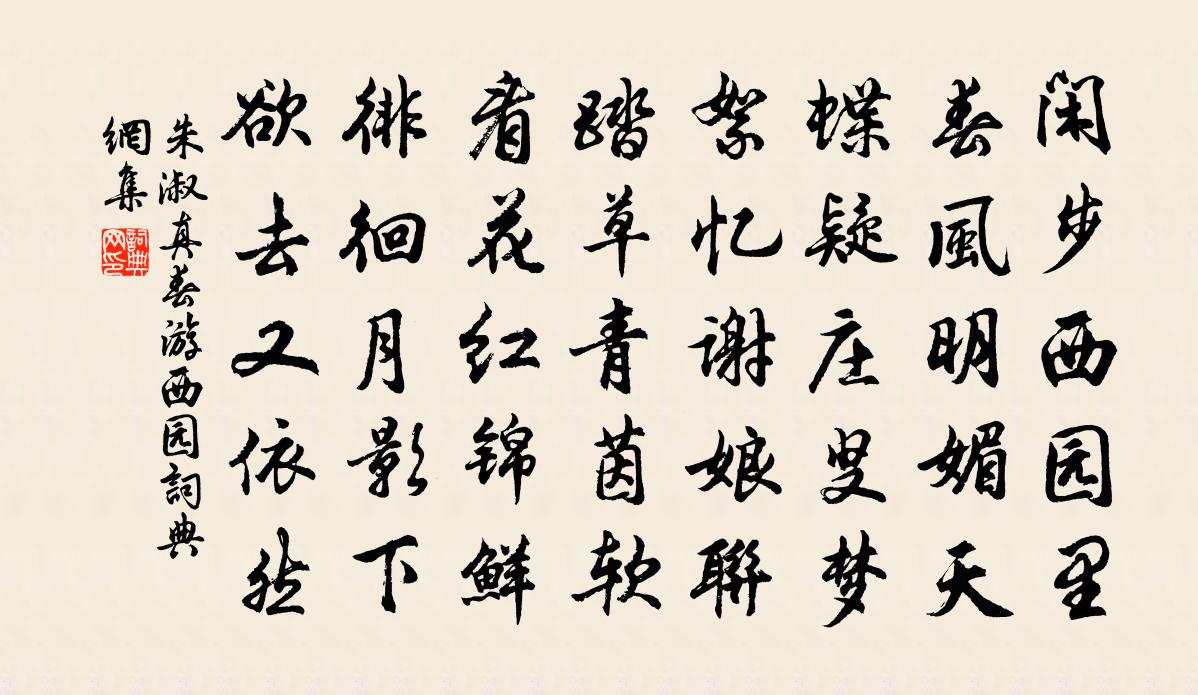 闲步西园里
春風明媚天
蝶疑庄叟梦
絮忆谢娘聯
踏草青茵软
看花红锦鲜
徘徊月影下
欲去又依然
朱淑真春游西园詞典
網集
詞典
网印